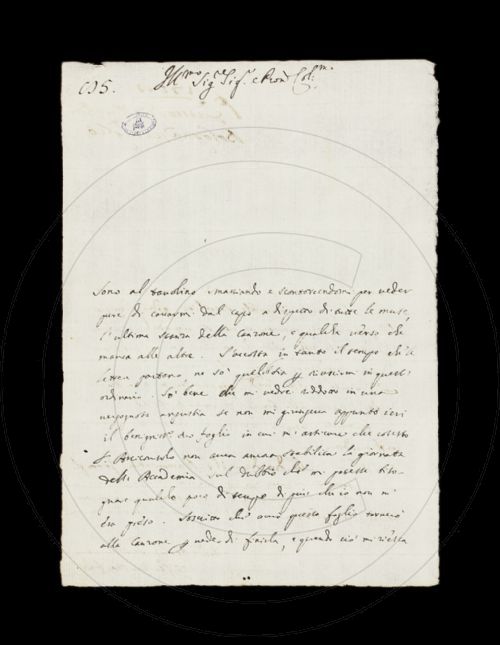 C95. Ill.mo Sig.r Sig.r e Pron Col.mo
Sono al tavolino smaniando e scontorcendomi per veder
pure di cavarmi dal capo a dispetto di tutte le muse,
l'ultima stanza della canzone, e qualche verso che
manca alle altre. S'accosta in tanto il tempo che le
lettere partono, ne so quel che sia per riuscirmi in quest'
ordinario. So bene che mi vedrei ridotto in una
vergognosa angustia se non mi giungeva appunto ieri
il benignissimo suo foglio in cui m'
che cotesto
S.r Arciconsolo non aveva ancora stabilita la giornata
della Accademia sul dubbio che mi potesse biso-
gnare qualche poco di tempo di più che io non mi
ero preso. che avrò questo foglio tornerò
alla Canzone per veder di finirla, e quando ciò mi riesca